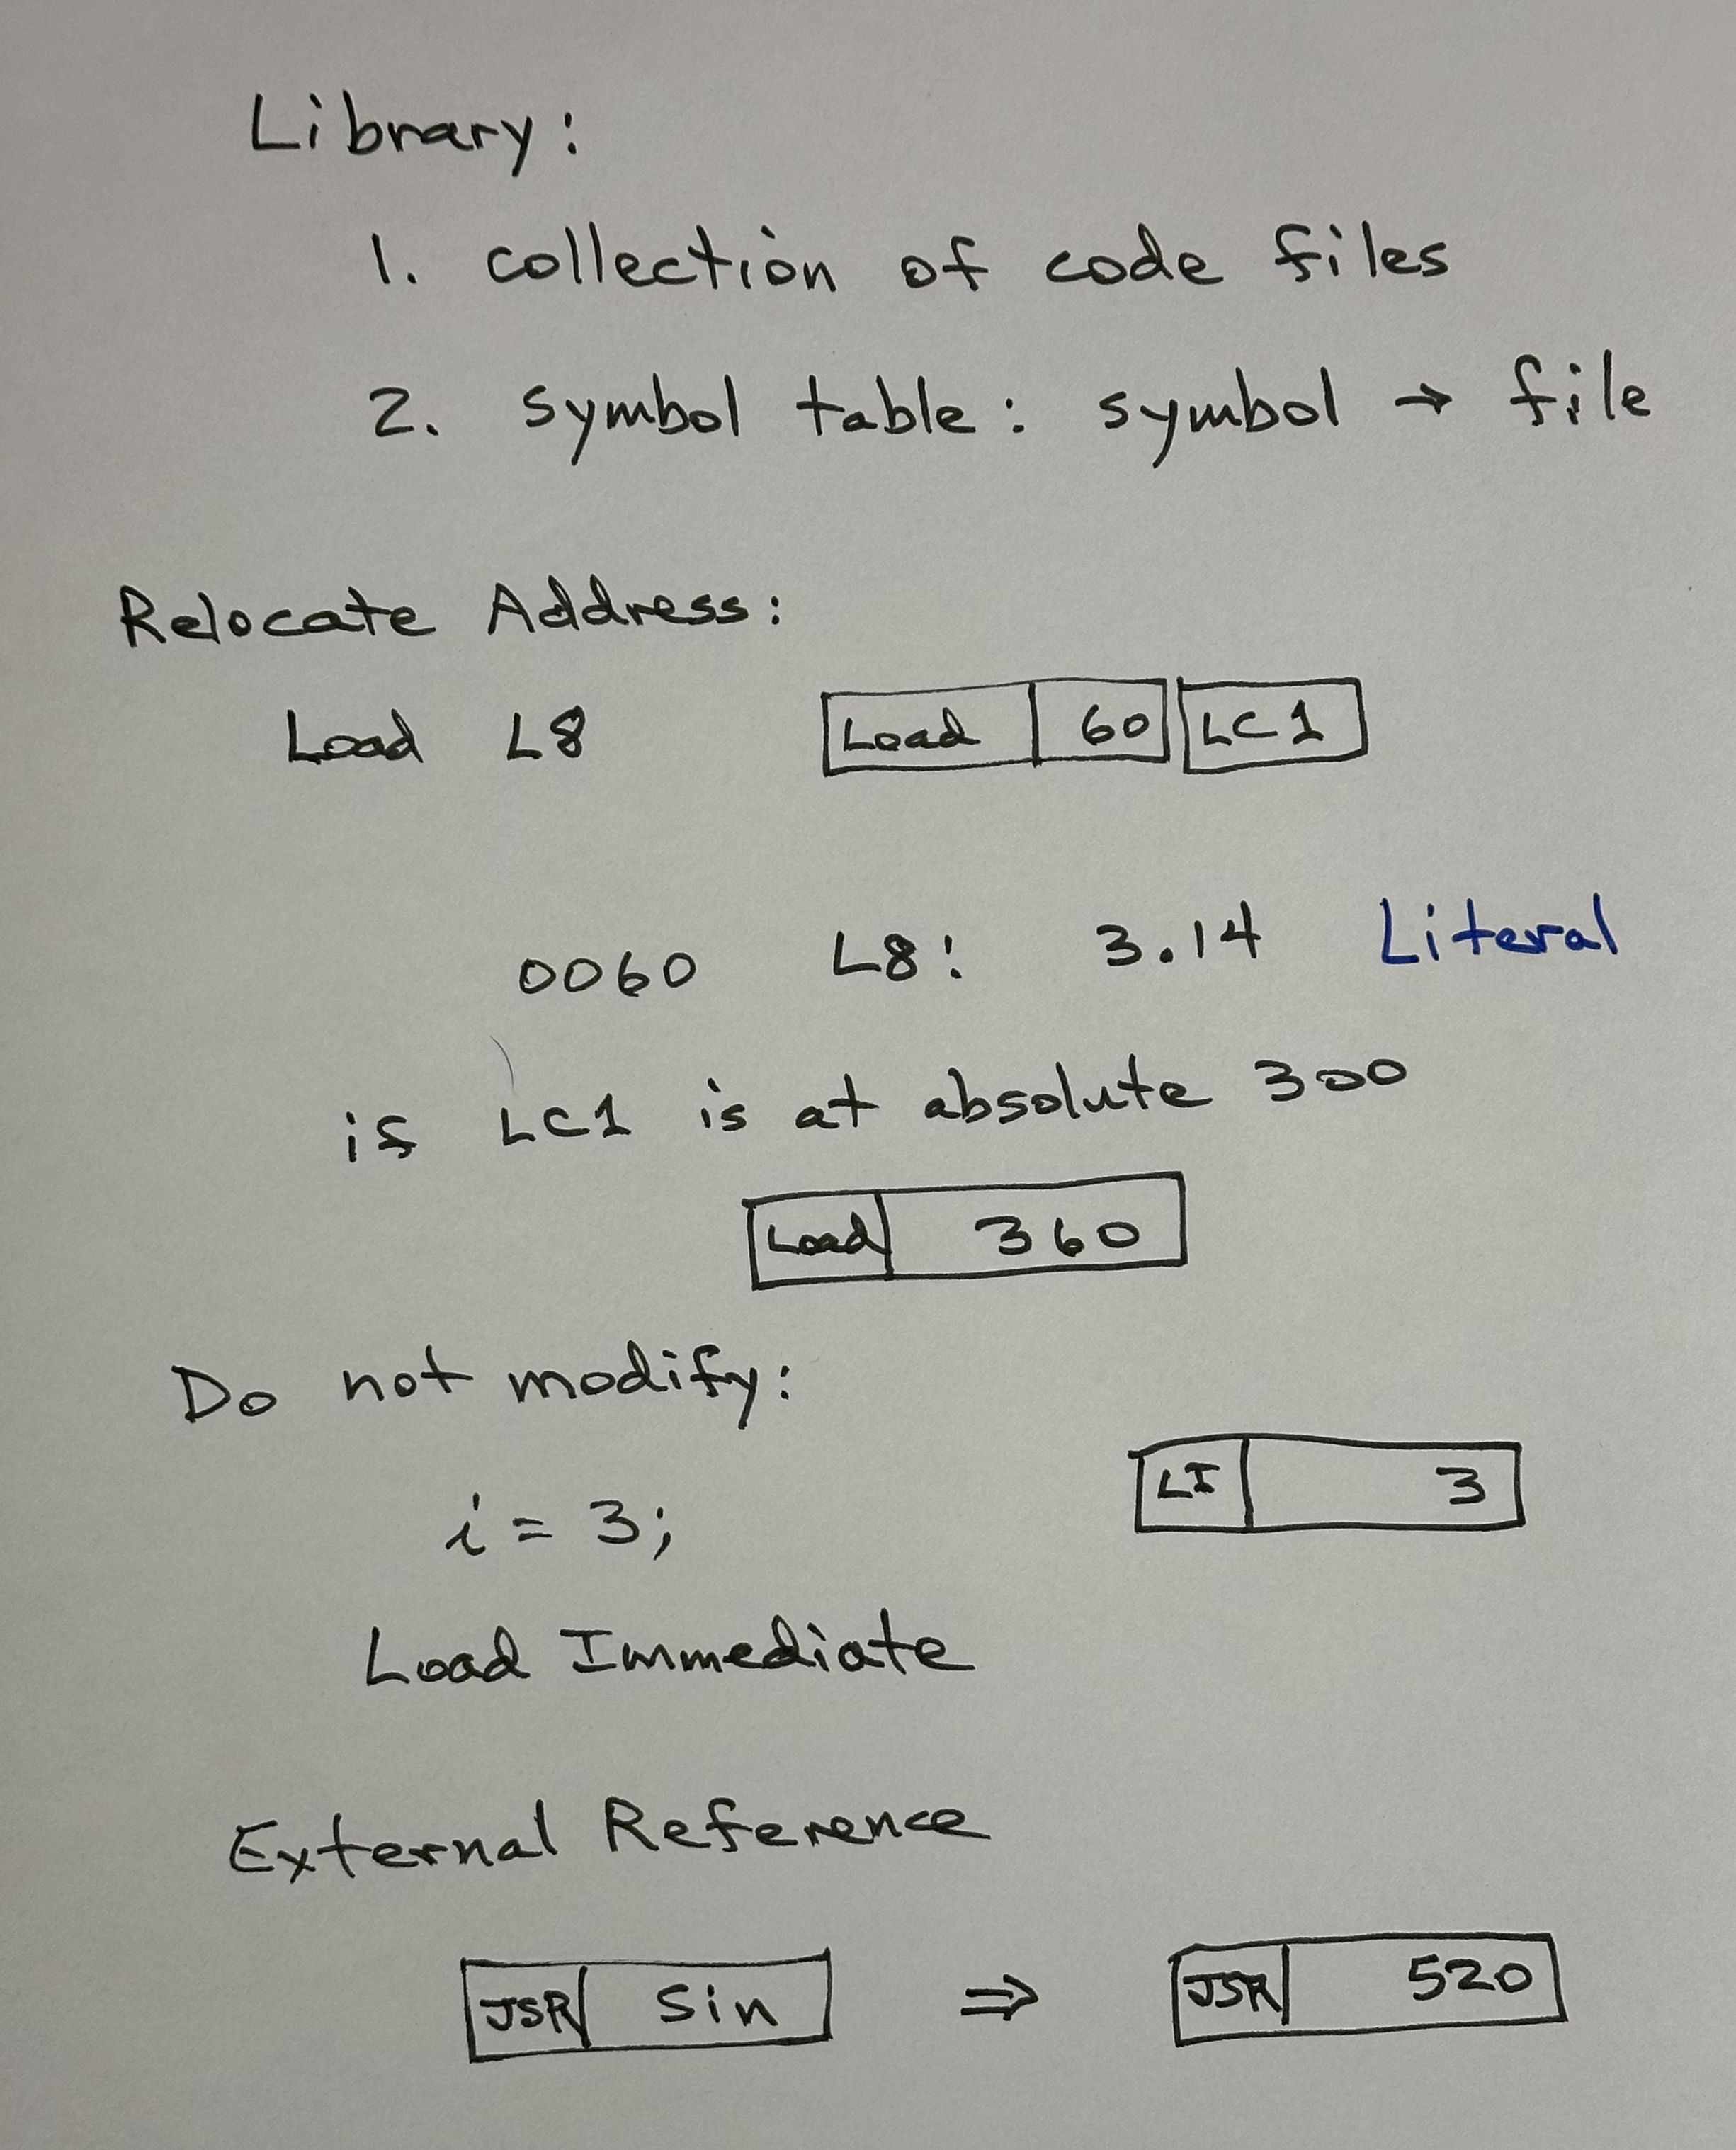 Library:
1. collection of code files
2. symbol table: symbol → file
Relocate Address:
Load L8 Load 60 LC1
0060 L8: 3.14 Literal
if LC1 is at absolute 300
Load 360
Do not modify:
i = 3; LI 3
Load Immediate
External Reference
JSR Sin ⇒ JSR 520